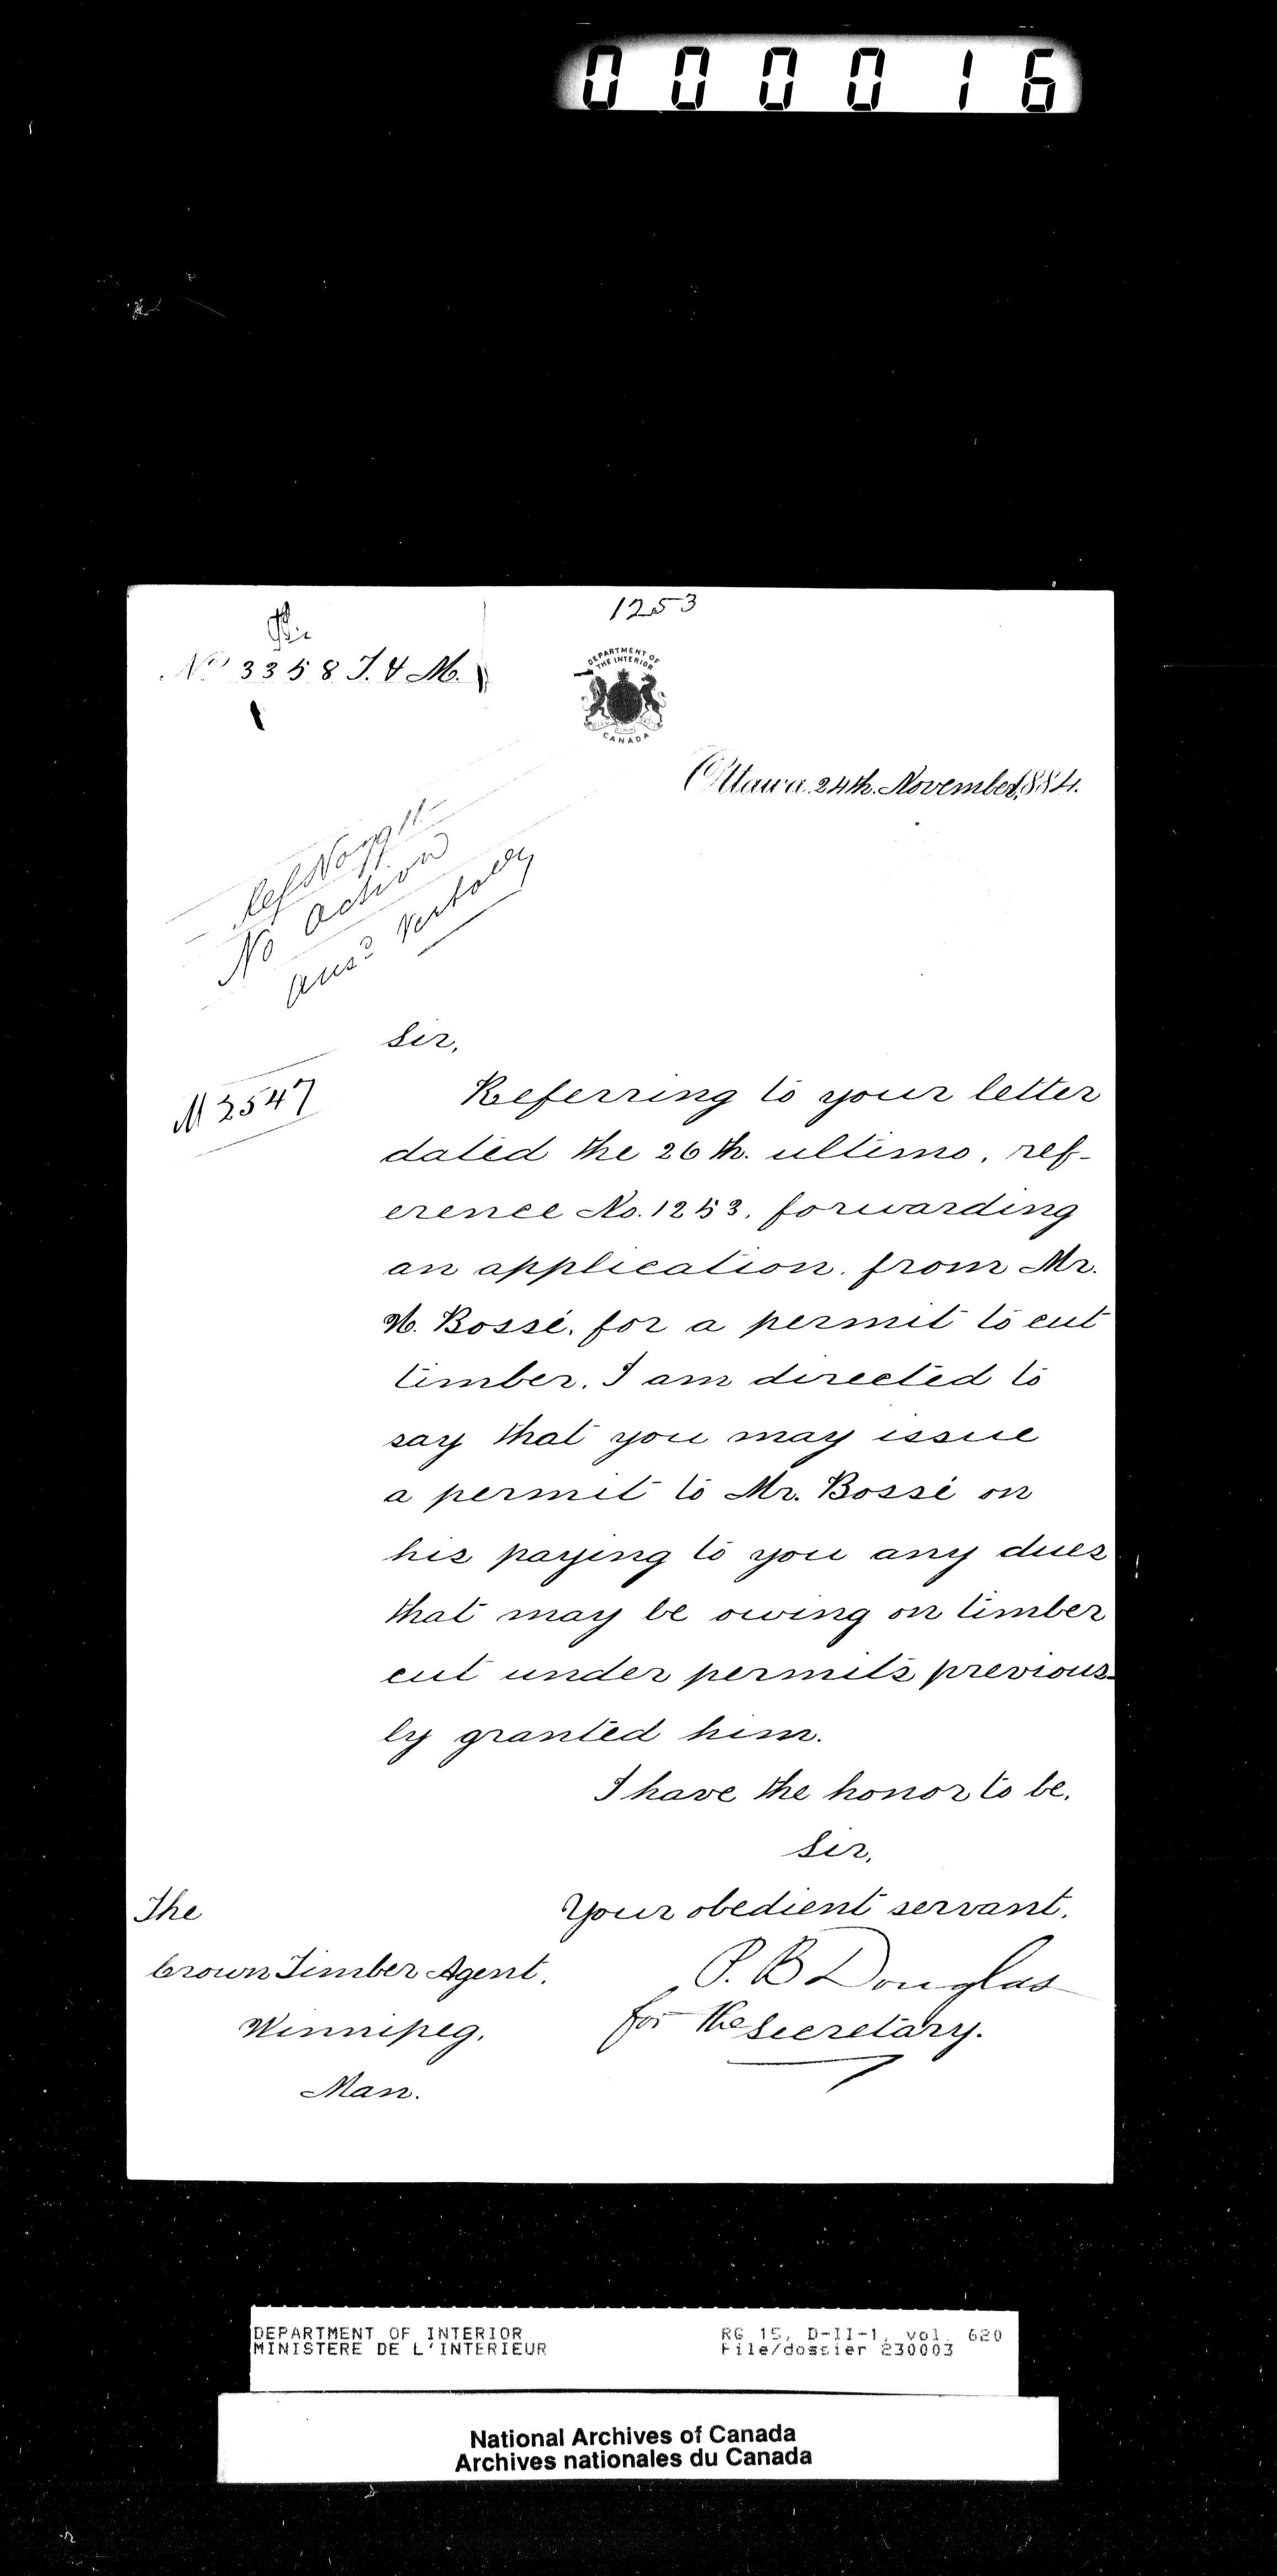 000016
1253
No 3358 T. & M.
DEPARTMENT OF
THE INTERIOR
CANADA
Ottawa, 24th. November, 1884.
No action
ans? Verbally
Sir,
M 2547
Referring to your letter
dated the 26th. ultimo, ref-
erence No. 1253, forwarding
an application from Mr.
N. Bossé, for a permit to cut
timber, I am directed to
say that you may issue
a permit to Mr. Bossé on
his paying to you any dues
that may be owing on timber
cut under permits previous-
ly granted him.
I have the honor to be,
Sir,
Your obedient servant,
P. B Douglas
for the Secretary.
The
Crown Timber Agent,
Winnipeg,
Man.
DEPARTMENT OF INTERIOR
MINISTERE DE L'INTERIEUR
RG 15, D-II-1, vol. 620
File/dossier 230003
National Archives of Canada
Archives nationales du Canada